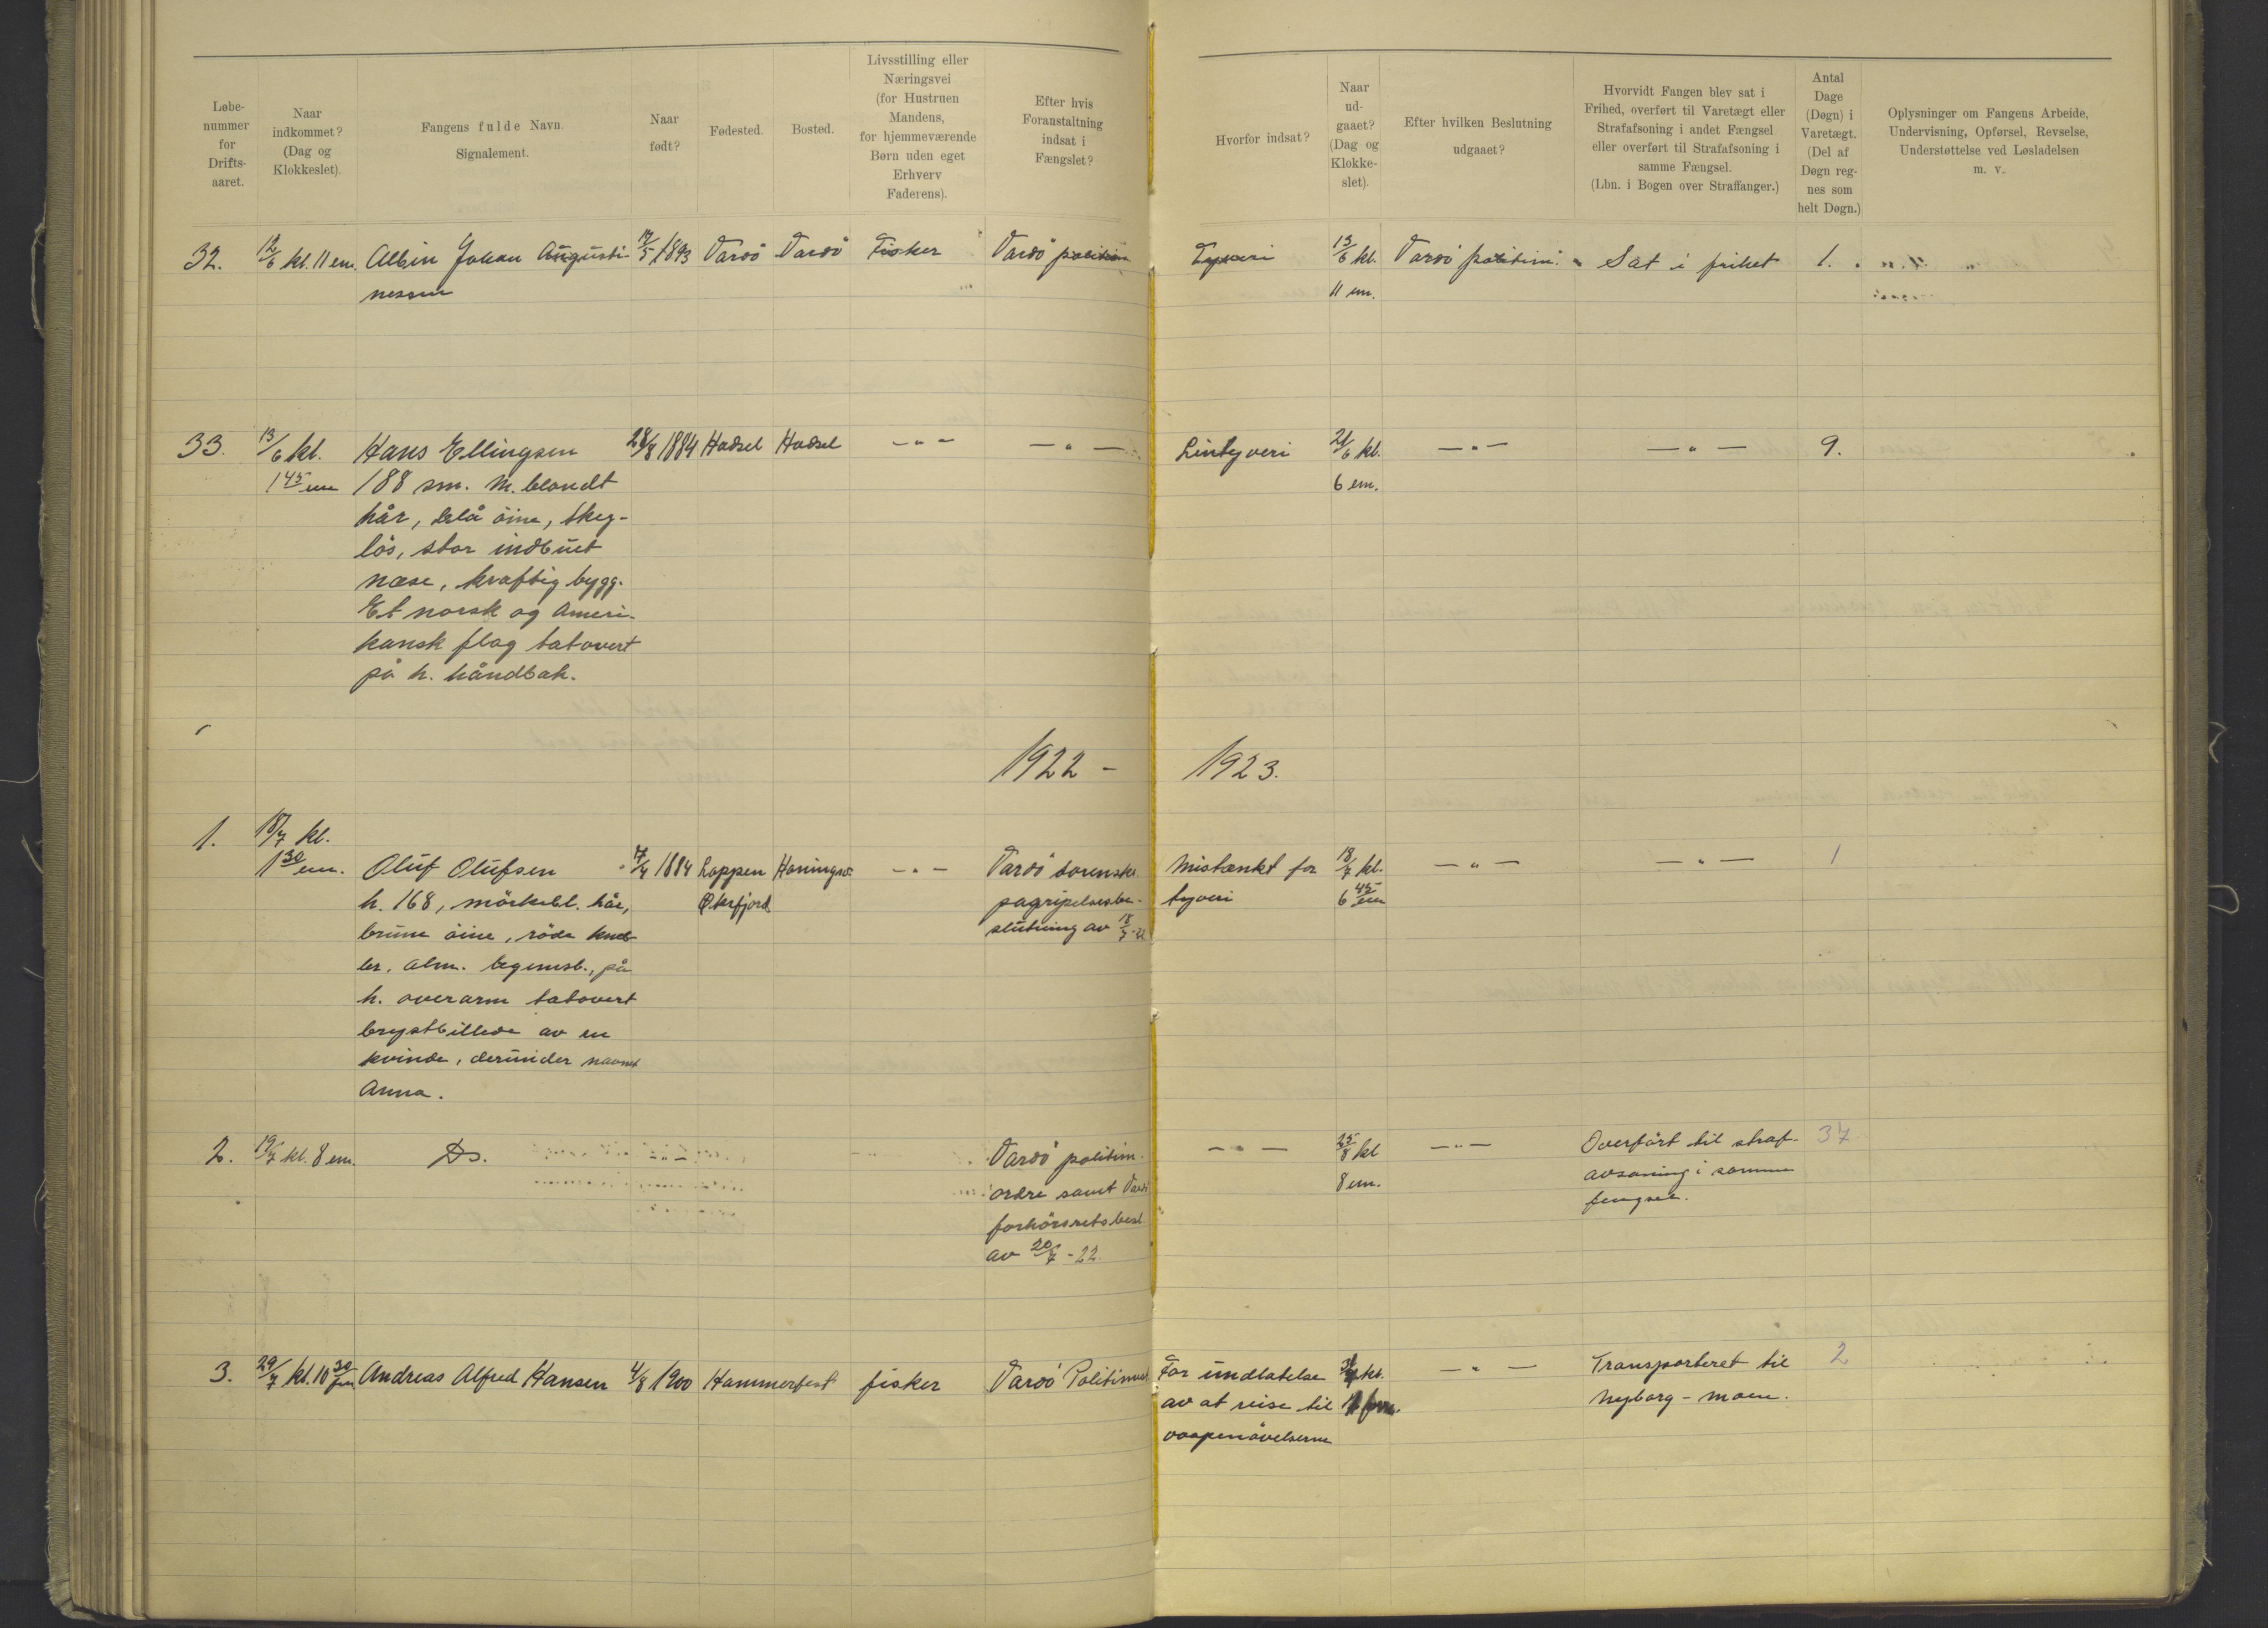 Løbe-
nummer
for
Drifts-
aaret.
Naar
indkommet?
(Dag og
Klokkeslet).
Fangens fulde Navn.
Signalement.
Naar
født?
Fødested.
Bosted.
Livsstilling eller
Næringsvei
(for Hustruen
Mandens,
for hjemmeværende
Børn uden eget
Erhverv
Faderens).
Efter hvis
Foranstaltning
indsat i
Fængslet?
Hvorfor indsat?
Naar
ud-
gaaet?
(Dag og
Klokke-
slet).
Efter hvilken Beslutning
udgaaet?
Hvorvidt Fangen blev sat i
Frihed, overført til Varetægt eller
Strafafsoning i andet Fængsel
eller overført til Strafafsoning i
samme Fængsel.
(Lbn. i Bogen over Straffanger.)
Antal
Dage
(Døgn) i
Varetægt.
(Del af
Døgn reg-
nes som
helt Døgn.)
Oplysninger om Fangens Arbeide,
Undervisning, Opførsel, Revselse,
Understøttelse ved Løsladelsen
m. v.
32. 12/6 kl. 11 em. Albin Johan Augusti- 17/5 1893 Vardö Vardö Fisker Vardö politim. Tyveri 13/6 kl. Vardö politim. Sat i frihet 1.
nessen 11 em.
33. 13/6 kl. Hans Ellingsen 28/8 1884 Hadsel Hadsel -"- -"- Lintyveri 21/6 kl. -"- -"- 9.
1 45 em 188 sm. m. blondt 6 em.
hår, blå öine, skeg-
lös, stor indbuet
næse, kraftig bygg.
Et norsk og Ameri-
kansk flag tatovert
på h. håndbak.
1922 - 1923.
1. 18/7 kl.
1 30 em. Oluf Olufsen 7/4 1884 Loppen Honingsv. -"- Vardö sorensk. Mistænkt for 18/7 kl. -"- -"- 1
h. 168, mörkebl. hår, Øksfjord pagripelsesbe- tyveri 6 45 em
brune öine, röde kneb- slutning av 18/7-22
ler. alm. legemsb., på
h. overarm tatovert
brystbillede av en
kvinde, derunder navnet
Anna.
2. 19/7 kl. 8 em. Ds. -"- Vardö politim. -"- 25/8 kl -"- Overfört til straf- 37
ordre samt Vardö 8 em. avsoning i samme
forhörsrets besl. fengsel.
av 20/7 - 22.
3. 29/7 kl. 10 30 fm Andreas Alfred Hansen 4/8 1900 Hammerfest fisker Vardö Politimest For undlatelse kl. -"- Transporteret til 2
av at reise til fm. Nyborg-moen.
vaapenövelserne